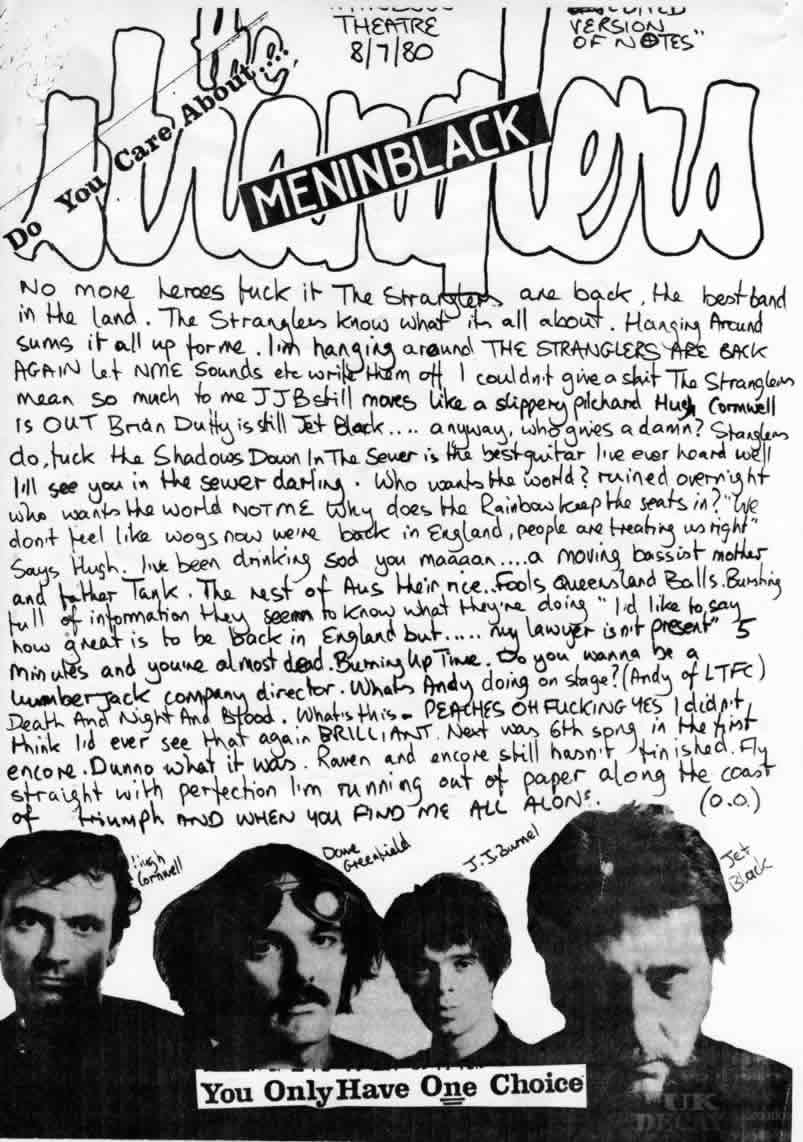 THEATRE
8/7/80
VERSION
OF NOTES"
the
stranglers
Do You Care About....
MENINBLACK
No more heroes fuck it The Stranglers are back, the best band
in the land. The Stranglers know what its all about. Hanging Around
sums it all up for me. I'm hanging around THE STRANGLERS ARE BACK
AGAIN let NME Sounds etc write them off I couldn't give a shit The Stranglers
mean so much to me JJB still moves like a slippery pilchard Hugh Cornwell
is OUT Brian Duffy is still Jet Black.... anyway, who gives a damn? Stanglers
do, fuck the Shadows Down In The Sewer is the best guitar I've ever heard well
I'll see you in the sewer darling. Who wants the world? ruined overnight
who wants the world NOT ME Why does the Rainbow keep the seats in? "We
don't feel like wogs now we're back in England, people are treating us right"
Says Hugh. I've been drinking sod you maaaan....a moving bassist mother
and father Tank. The rest of Aus their rice.. Fools Queensland Balls. Bursting
full of information they seem to know what they're doing "I'd like to say
how great is to be back in England but..... my lawyer isn't present" 5
minutes and you're almost dead. Burning Up Time. Do you wanna be a
lumberjack company director. Whats Andy doing on stage? (Andy of LTFC)
Death And Night And Blood. What's this - PEACHES OH FUCKING YES I didn't
think I'd ever see that again BRILLIANT. Next was 6th song in the first
encore. Dunno what it was. Raven and encore still hasn't finished. Fly
straight with perfection I'm running out of paper along the coast
of triumph AND WHEN YOU FIND ME ALL ALONE. (O.O.)
Hugh Cornwell
Dave Greenfield
J.J. Burnel
Jet Black
You Only Have One Choice
UK
DECAY